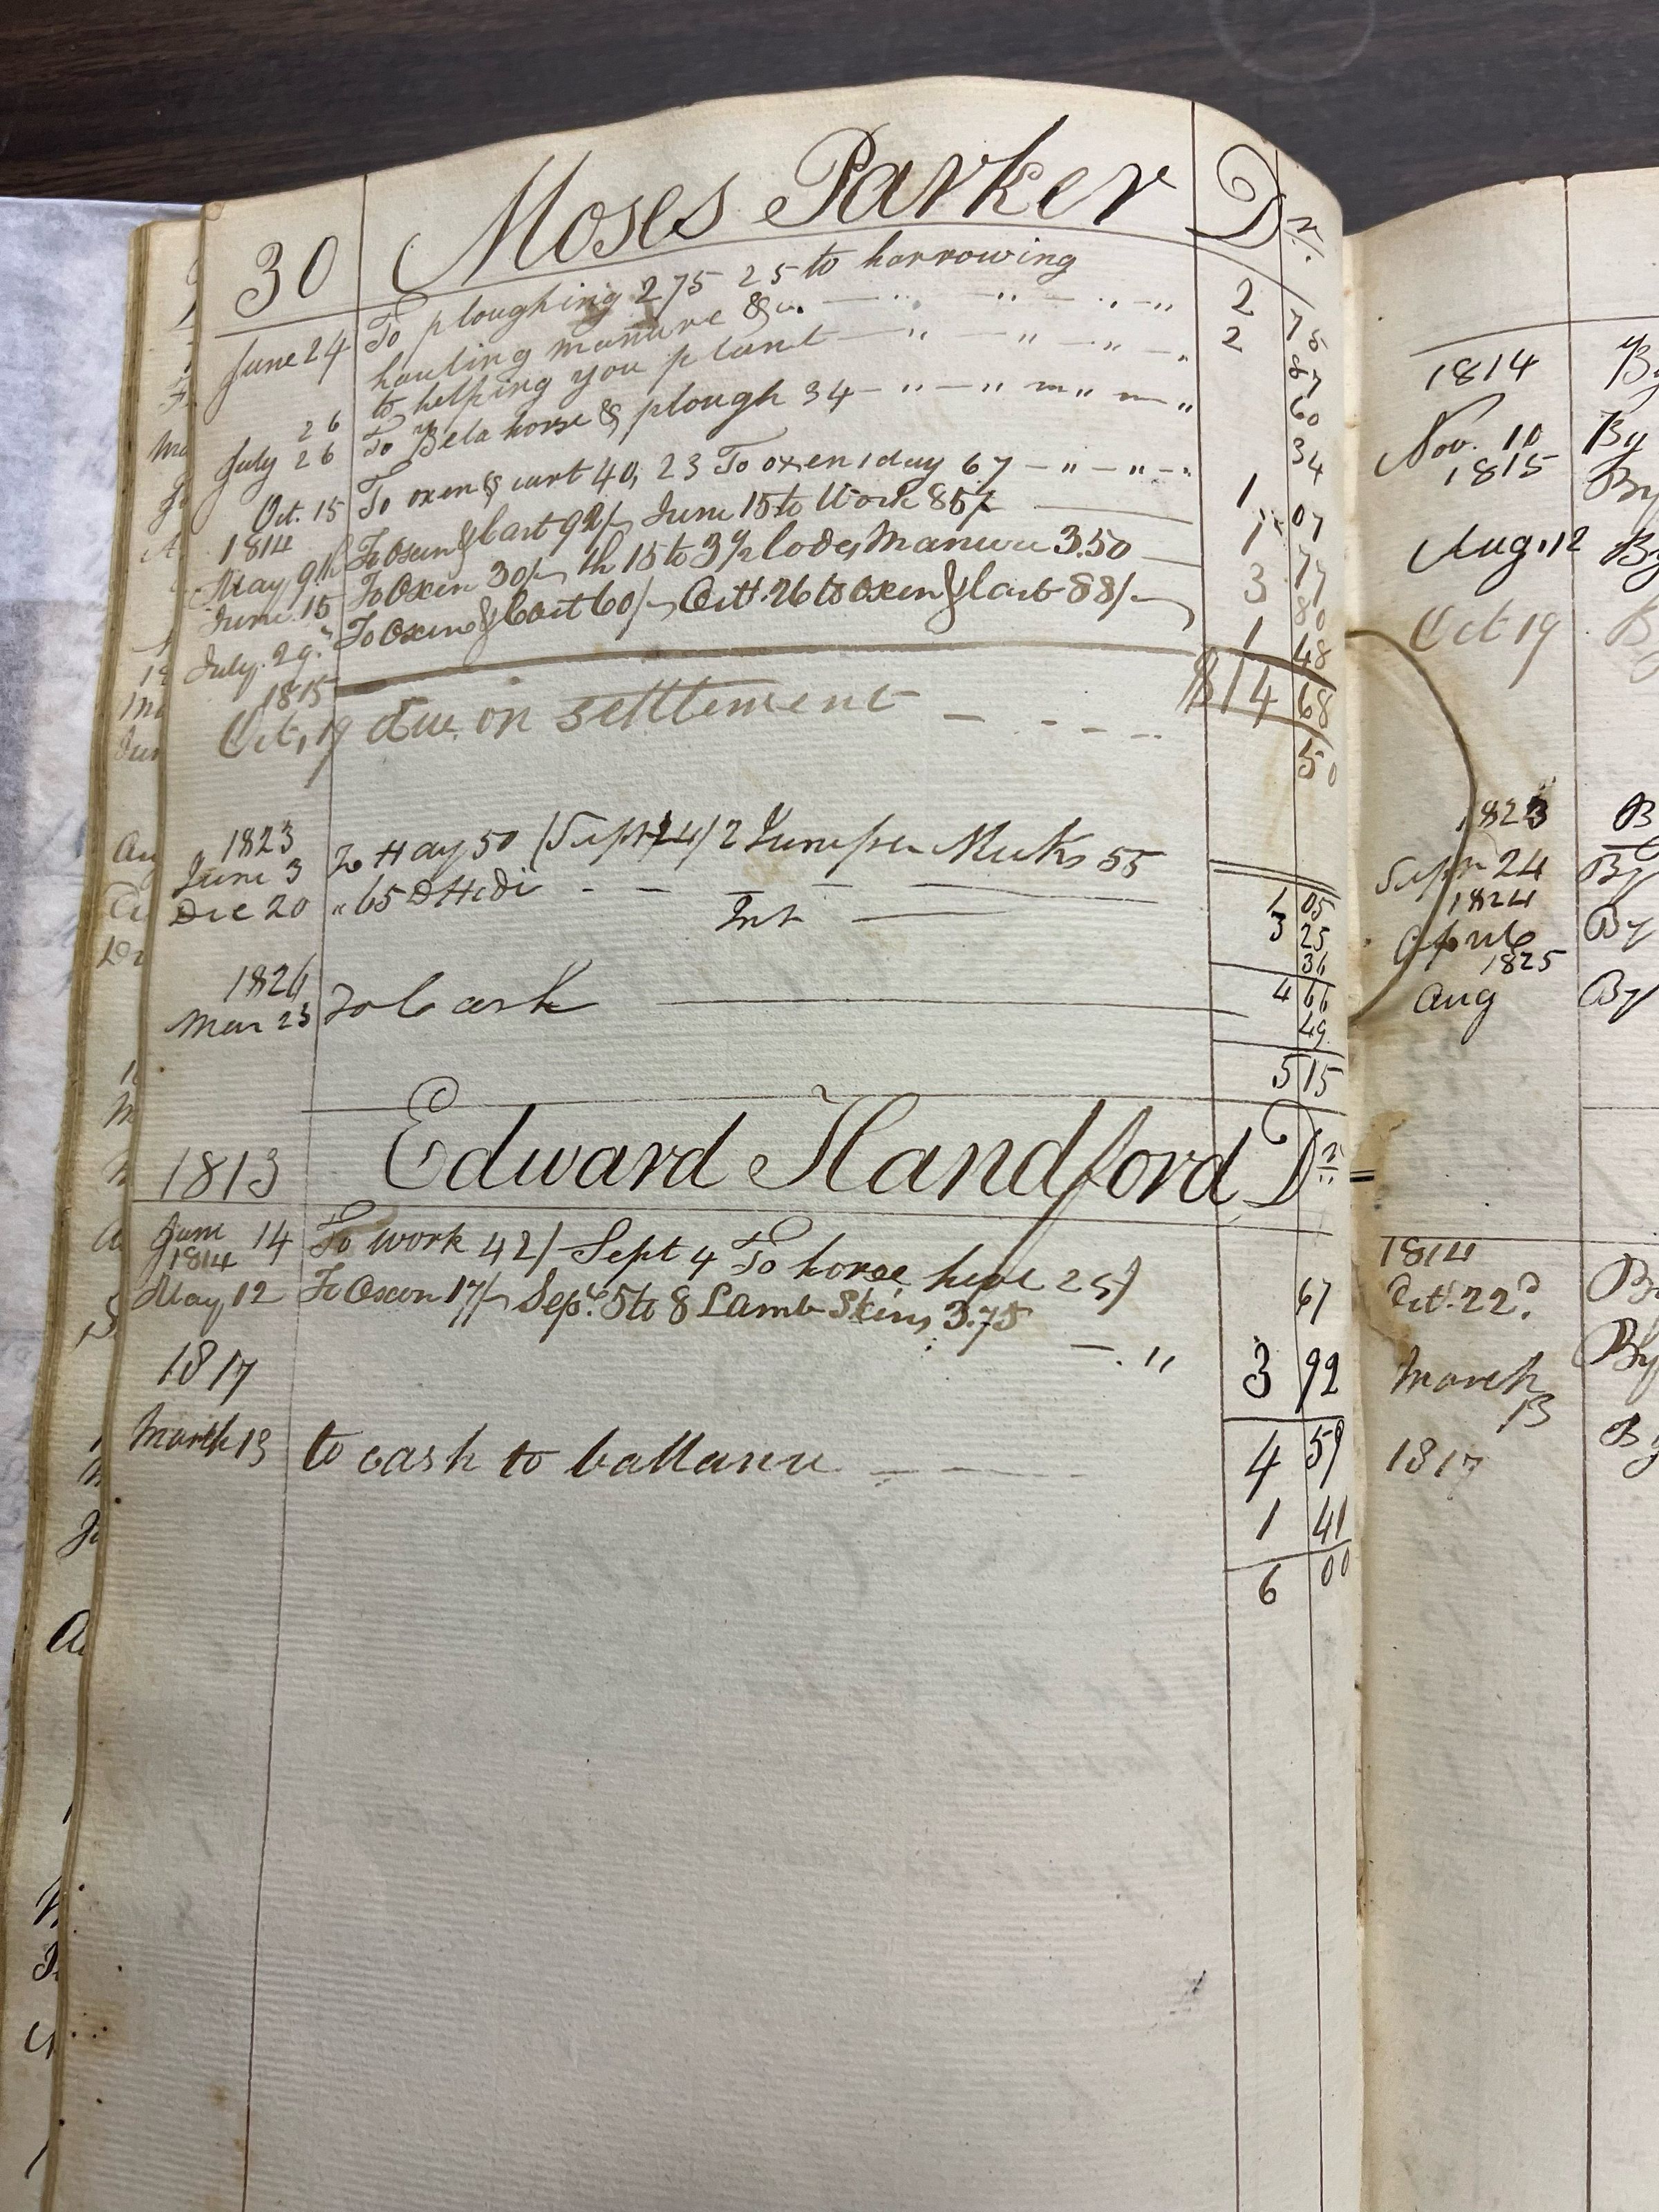 30 Moses Parker Dr.
June 24 To ploughing 275 25 to harrowing 2 75
hauling manure &c. 2 87
to helping you plant 60
26
July 26 To Bela horse & plough 34 34
Oct. 15 To oxen & cart 40, 23 To oxen 1 day 67 1 07
1814
May 9th To Oxen & Cart 92/ June 15 to Work 85/ 1 77
June 15 To Oxen 30/ th 15 to 3 1/2 lodes Manure 3.50 3 80
July 29th To Oxen & Cart 60/ Oct. 26 to oxen & Cart 88/ 1 48
1815 $14 68
Oct, 19 due on settlement 50
1823
June 3 To Hay 50 (Sept 24) 2 55 1 05
Dec 20 " 65 3 25
Int 36
4 66
1826
Mar 23 To Cash 49
5 15
1813 Edward Handford Dr.
June 14 To work 42/ Sept 4 To horse hire 25/ 67
1814
May 12 To Oxen 17/ Sept. 5 to 8 Lamb Skins 3.75 3 92
1817
4 59
March 13 to cash to ballance 1 41
6 00
1814 By
Nov. 10 By
1815 By
Aug. 12 By
Oct 19 B
1823 B
Sept 24 By
1824
April 6 By
1825
Aug By
1814
Oct. 22d. B
By
March 13
1817 By